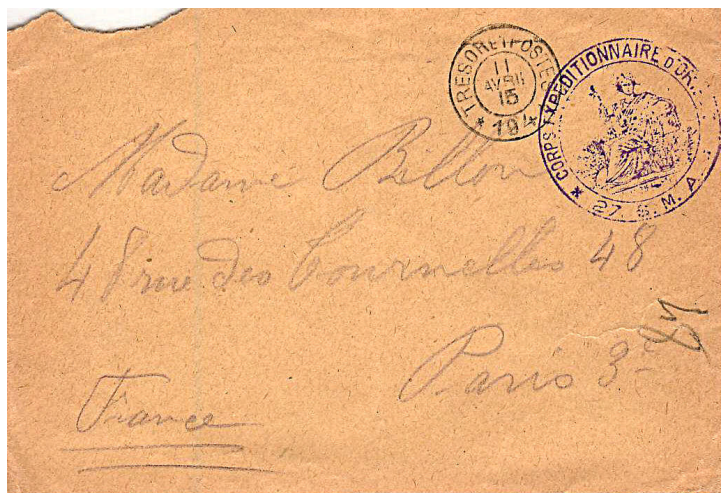 TRESOR ET POSTES
11
AVRIL
15
* 194 *
* CORPS EXPEDITIONNAIRE D'OR
27 S. M. A.
Madame Bellon
48 rue des Tournelles 48
Paris 3e
France